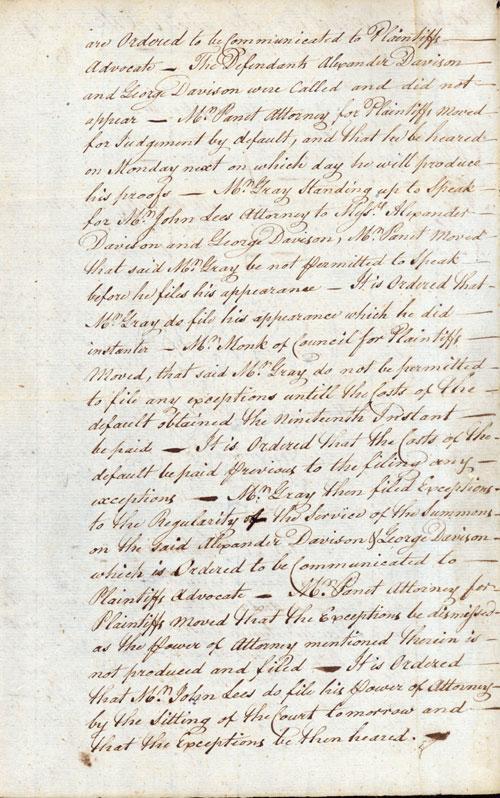 are Ordered to be Communicated to Plaintiffs
Advocate — The Defendants Alexander Davison
and George Davison were Called and did not
appear — Mr. Panet Attorney for Plaintiffs Moved
for Judgement by default, and that he be heared
on Monday next on which day he will produce
his proofs — Mr. Gray Standing up to Speak
for Mr. John Lees Attorney to Messrs. Alexander
Davison and George Davison, Mr. Panet Moved
that said Mr. Gray be not permitted to Speak
before he files his appearance — It is Ordered that
Mr. Gray do file his appearance which he did
instanter — Mr. Monk of Council for Plaintiffs
Moved, that said Mr. Gray do not be permitted
to file any exceptions untill the Costs of the
default obtained the Nineteenth Instant
be paid — It is Ordered that the Costs of the
default be paid previous to the filing any
exceptions — Mr. Gray then filed Exceptions
to the Regularity of the Service of the Summons
on the Said Alexander Davison & George Davison
which is Ordered to be Communicated to
Plaintiffs Advocate — Mr. Panet Attorney for
Plaintiffs Moved that the Exceptions be dismissed
as the power of Attorney mentioned therein is
not produced and filed — It is Ordered
that Mr. John Lees do file his power of Attorney
by the Sitting of the Court tomorrow and
that the Exceptions be then heared. —